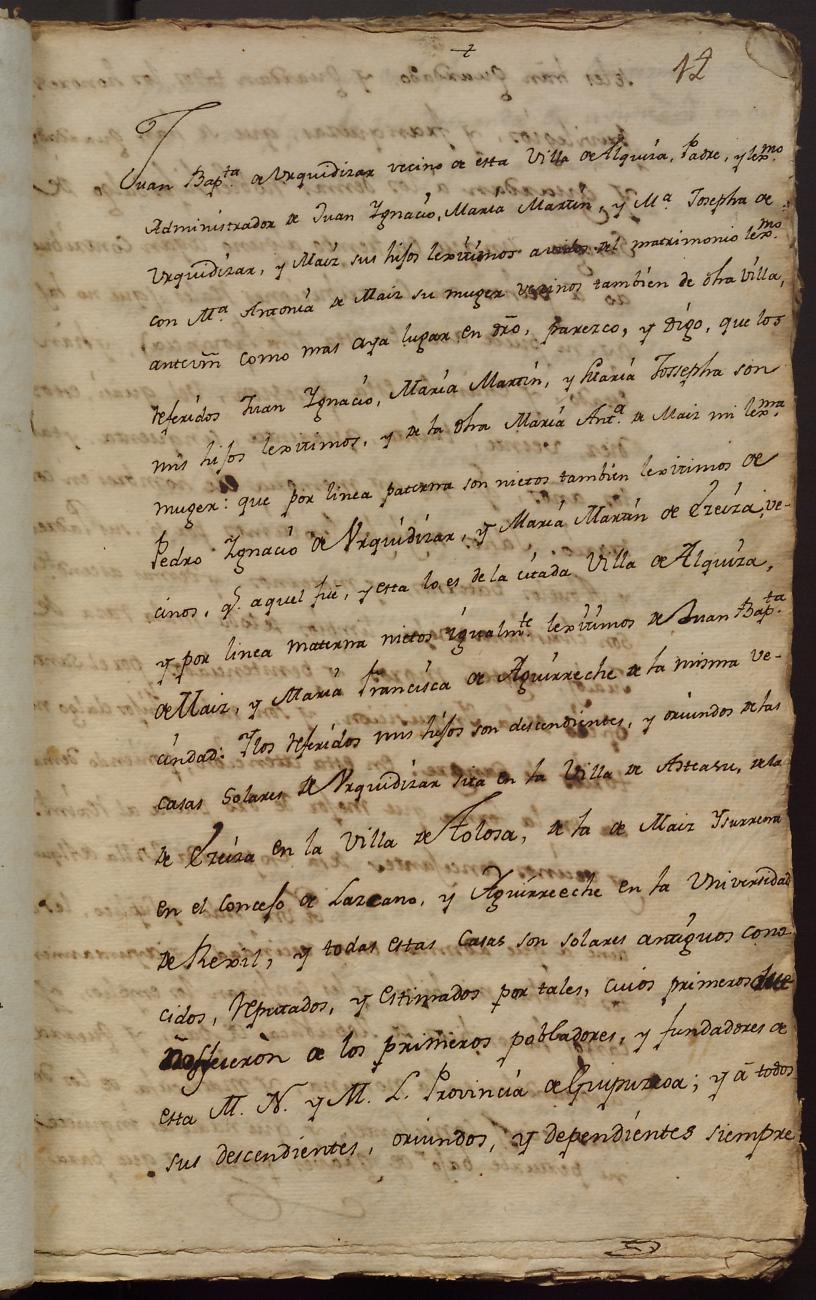 12
Juan Bapta. de Urquidizar vecino de esta Villa de Alquiza, Padre, y lexmo.
Administrador de Juan Ygnacio, Maria Martin, y Ma. Josepha de
Urquidizar, y Maiz sus hijos lexitimos avidos del matrimonio lexmo.
con Ma. Antonia de Maiz su muger vezinos tambien de dha Villa,
ante vm̃ como mas aya lugar en dr̃o, parezco, y digo, que los
referidos Juan Ygnacio, Maria Martin, y Maria Jossepha son
mis hijos lexitimos, y de la dha Maria Anta. de Maiz mi lexma.
muger: que por linea paterna son nietos tambien lexitimos de
Pedro Ygnacio de Urquidizar, y Maria Martin de Ezeiza, ve-
cinos, q. aquel fue, y esta lo es de la citada Villa de Alquiza,
y por linea materna nietos igualmte. lexitimos de Juan Bapta.
de Maiz, y Maria Francisca de Aguirreche de la misma ve-
cindad: Ylos referidos mis hijos son descendientes, y oriundos de las
casas Solares de Urquidizar sita en la Villa de Asteasu, de la
de Ezeiza en la Villa de Tolosa, de la de Maiz Ysurrena
en el Concejo de Lazcano, y Aguirreeche en la Universidad
de Rexil, y todas estas Casas son solares antiguos cono-
cidos, reputados, y estimados por tales, cuios primeros due
ños fueron de los primeros pobladores, y fundadores de
esta M. N. y M. L. Provincia de Guipuzcoa; y à todos
sus descendientes, oriundos, y dependientes siempre